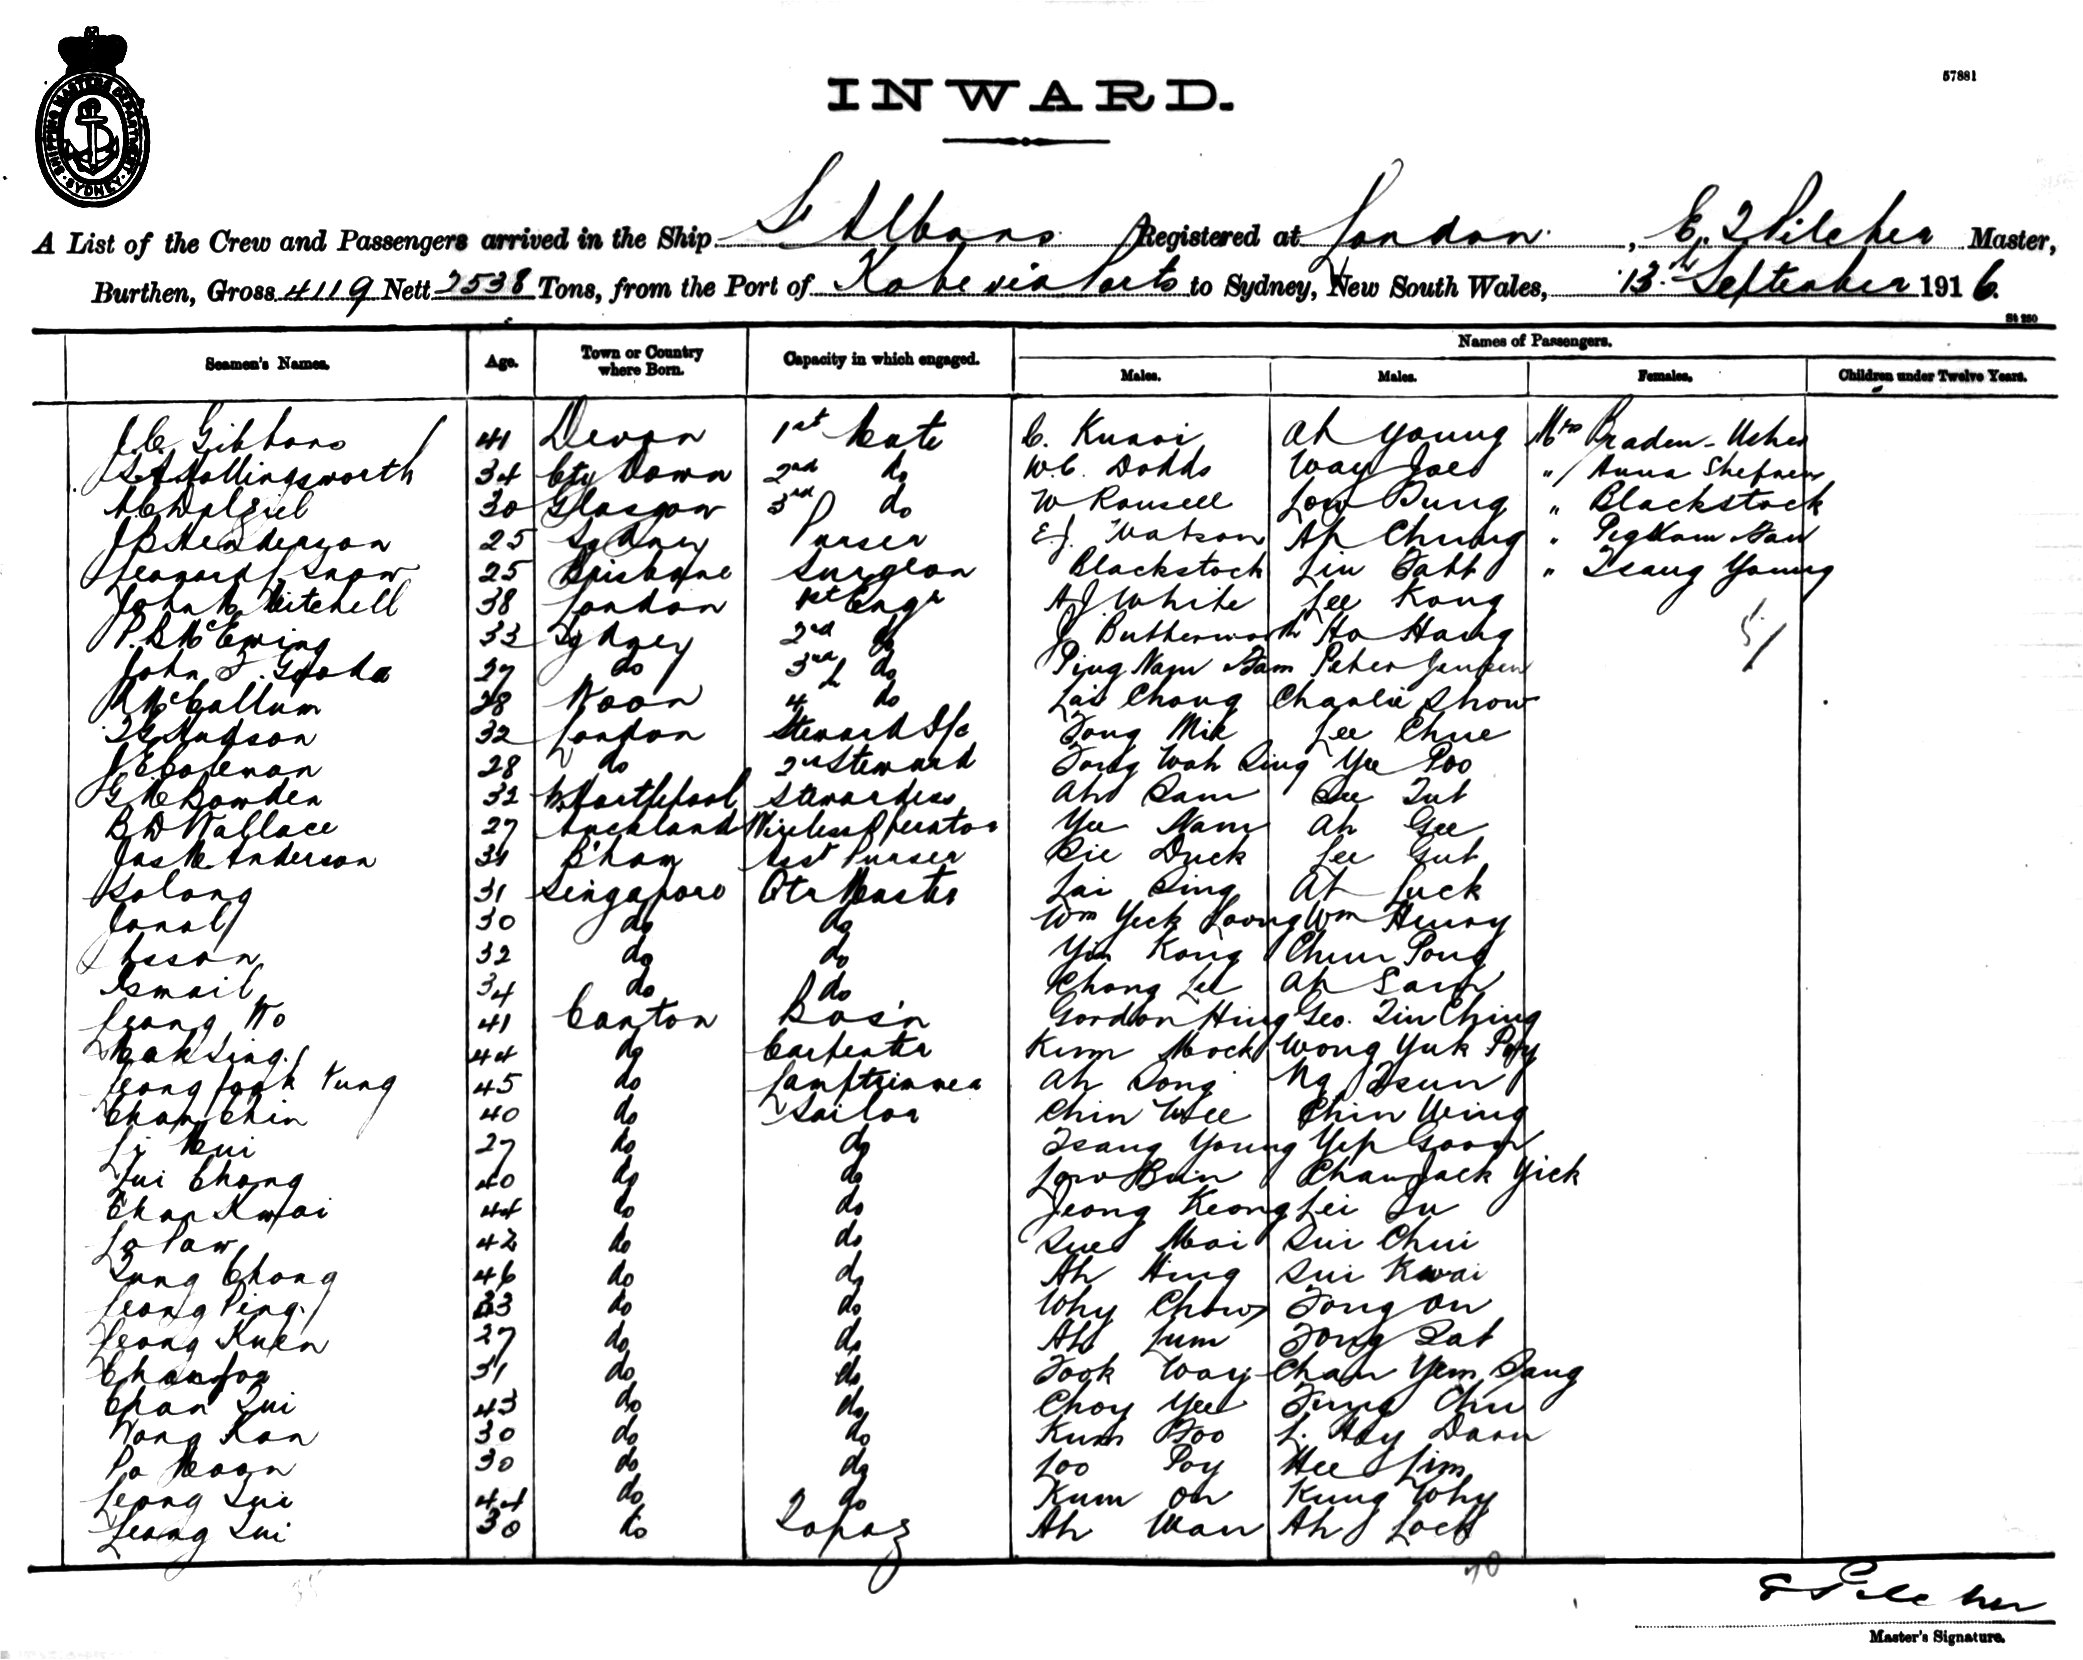 SHIPPING MASTERS DEPARTMENT · SYDNEY ·
57881
INWARD.
A List of the Crew and Passengers arrived in the Ship St Albans Registered at London, E. Pilcher Master,
Burthen, Gross 4119 Nett 2538 Tons, from the Port of Kobe via Ports to Sydney, New South Wales, 13th September 1916.
St 280
Seamen's Names. Age. Town or Country where Born. Capacity in which engaged. Names of Passengers.
Males. Males. Females. Children under Twelve Years.
J.C. Gibbons 41 Devon 1st Mate C. Ah Young Mrs Braden-Usher
Hollingsworth 34 Cty Down 2nd do W.C. Dodds Way " Anna
A C Dalziel 30 Glasgow 3rd do W Rousell Low " Blackstock
J B Henderson 25 Sydney Purser E.J. Watson Ah Chung "
Leonard Snow 25 Brisbane Surgeon Blackstock Liu " Tsang Young
John Mitchell 38 London 1st Engr A J White Lee Kong
P.B McEwing 33 Sydney 2nd do J Butterworth Ho Hang 5/
John 27 do 3rd do Ping Nam Peter
McCallum 28 4th do Lai Chong Charlie Show
Hudson 32 London Steward I/c Fong Mik Lee Chue
J E Coleman 28 do 2nd Steward Fong Wah Sing Yee Poo
G M Bowden 32 W Hartlepool Stewardess Ah Sam See Tut
B D Wallace 27 Auckland Wireless Operator Yee Nam Ah Gee
Jas Anderson 31 B'ham Asst Purser Sie Duck Lee Gut
Solong 31 Singapore Qtr Master Lai Sing Ah Luck
Jonal 30 do do Wm Yeck Loong Wm Henry
Assan 32 do do Yin Kong Chun Pong
Ismail 34 do do Chong Lee Ah Sam
Leong Wo 41 Canton Bos'n Gordon Hing Geo. Tin Ching
Mak Sing 44 do Carpenter Kum Mock Wong Yuk Poy
Leong Fook Kung 45 do Lamptrimmer Ah Song Ng Tsun
Chan Chin 40 do Sailor Chin Wee Chin Wing
Li Mui 27 do do Tsang Young Yep Goon
Lui Chong 40 do do Low Bun Chan Jack Yick
Chan Kwai 44 do do Jeong Keong Lei Su
Lo Paw 42 do do Sue Moi Sui Chui
Tung Chong 46 do do Ah Hing Sui Kwai
Leong Ping 33 do do Why Chow Fong On
Leong Kuen 27 do do Ah Lum Fong Sat
Chan 31 do do Fook Way Chan Yem Sang
Chan Tui 43 do do Choy Yee Fung Chu
Wong Kan 30 do do Kum Foo L. Hoy Daon
Po Moon 30 do do Loo Poy Hee Lim
Leong Tui 44 do do Kum On Kung Why
Leong Tui 30 do Topaz Ah Wan Ah Lock
35 70
E Pilcher
Master's Signature.